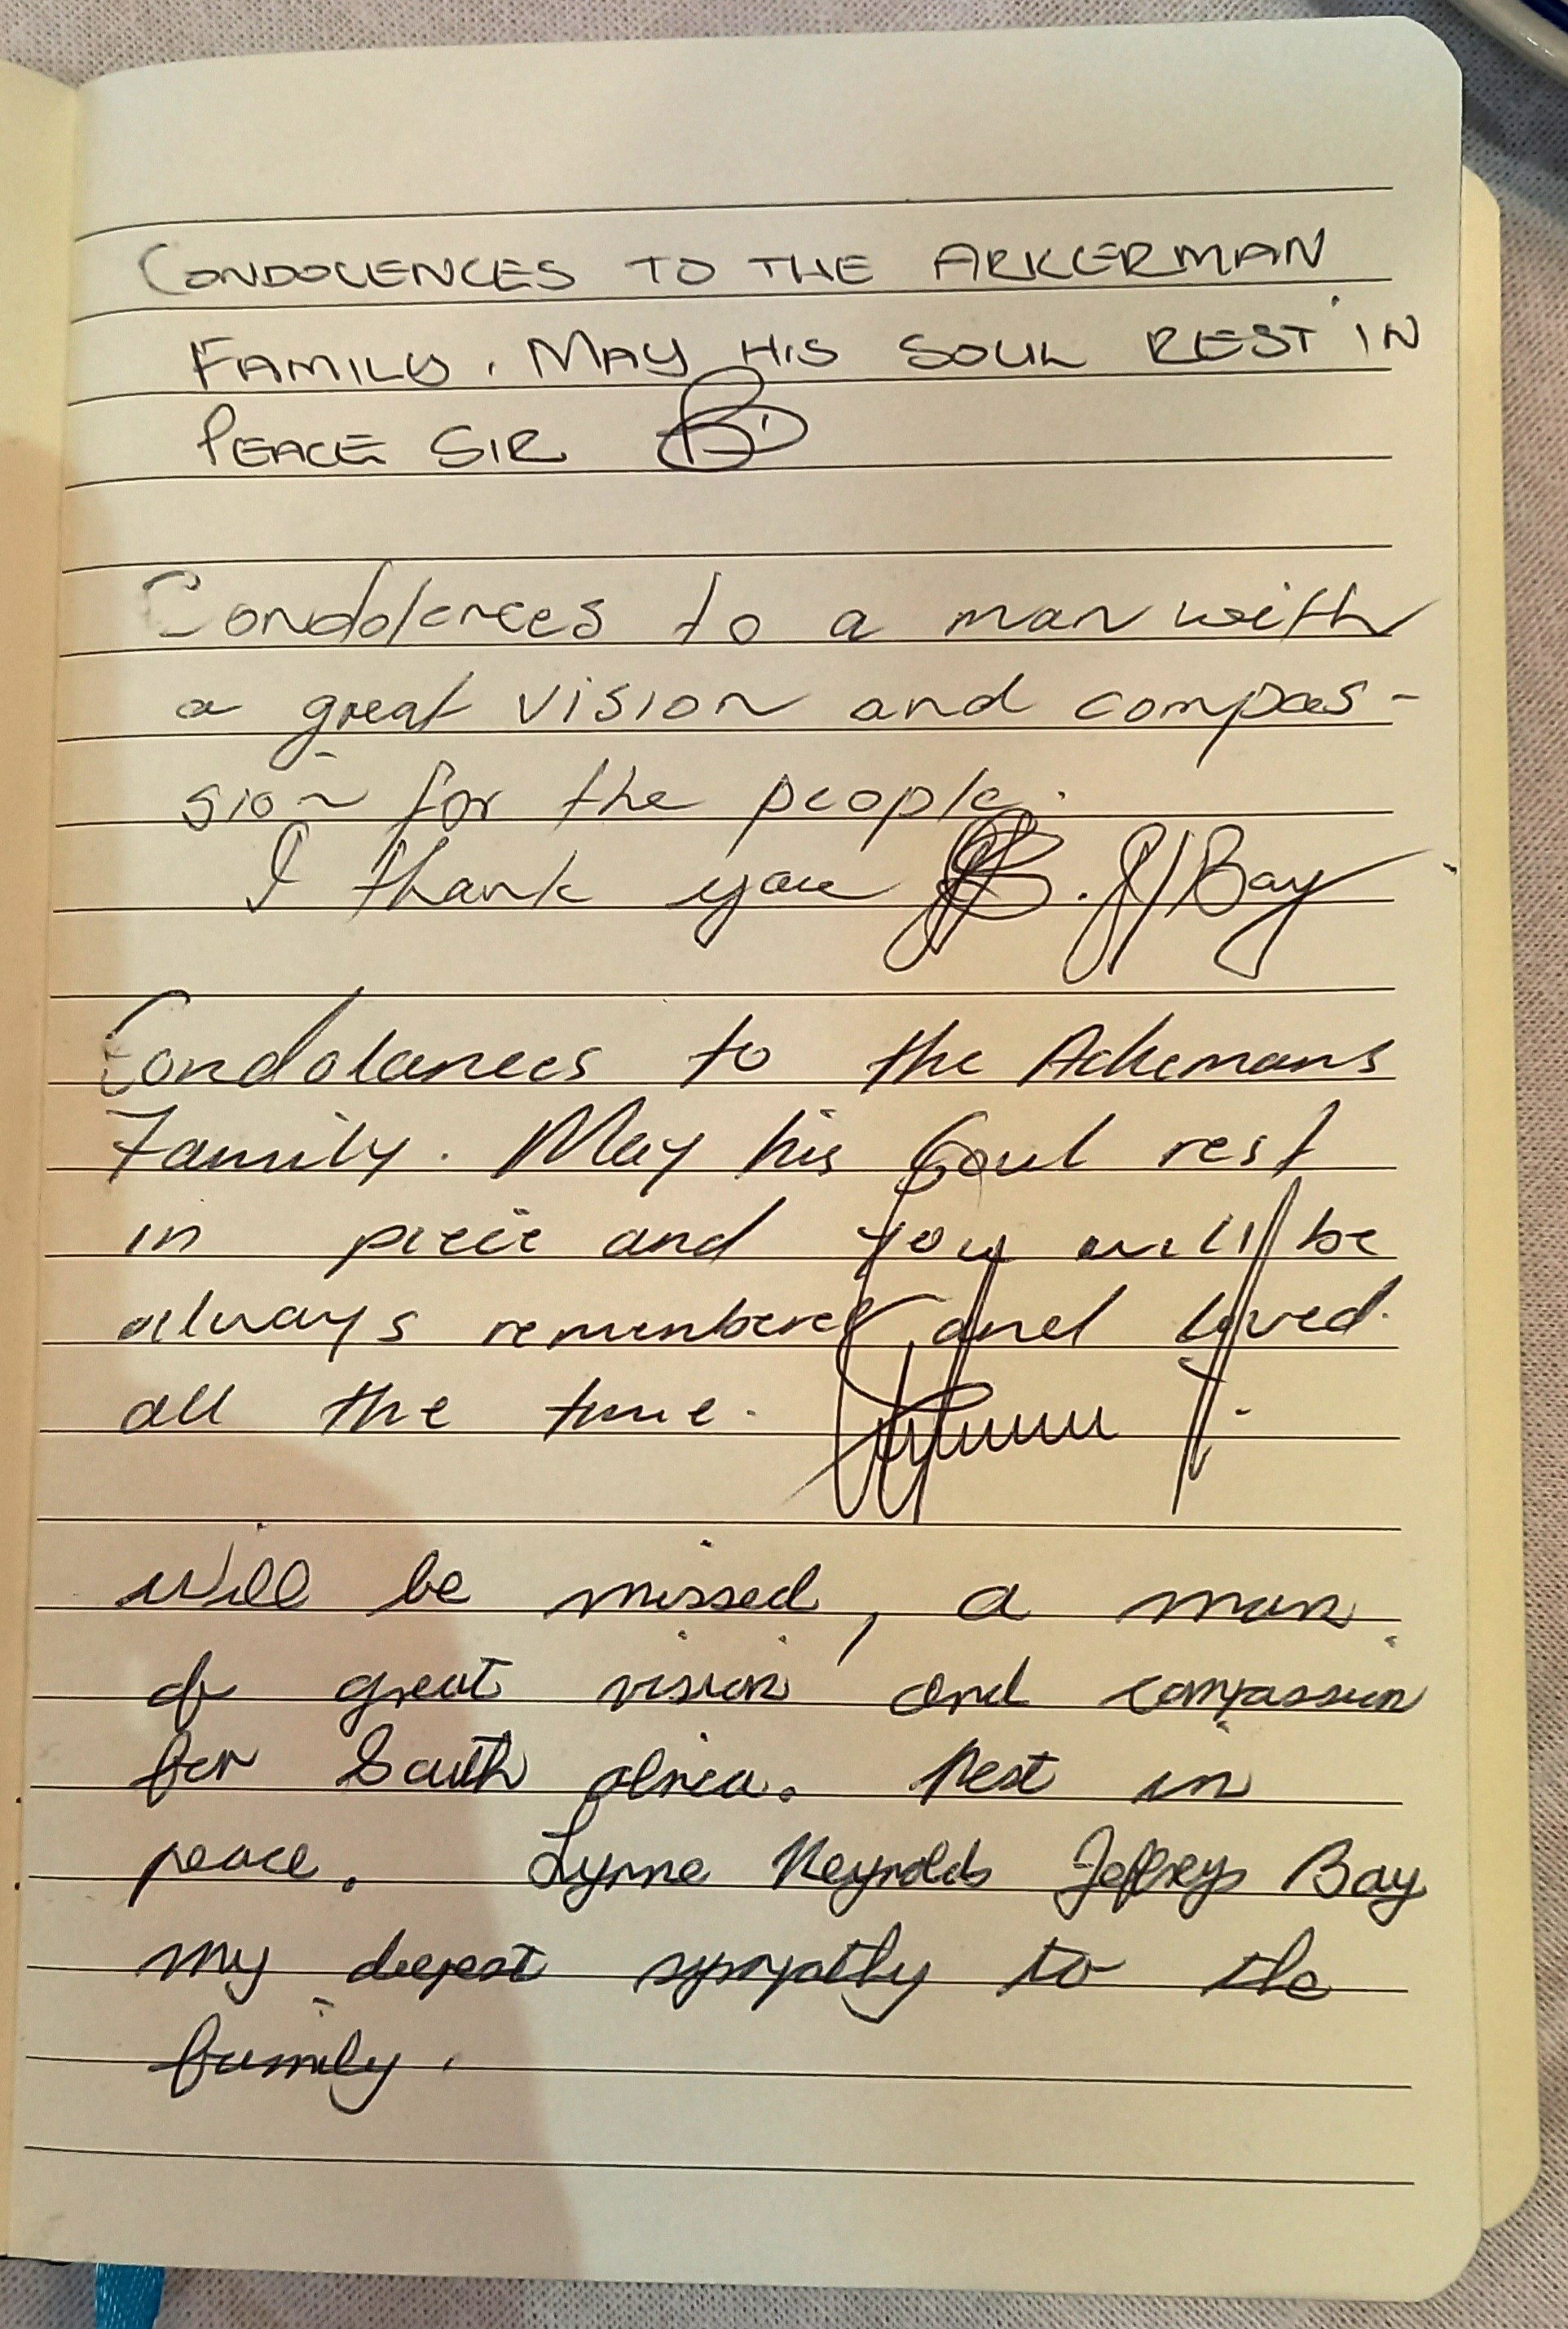 CONDOLENCES TO THE ARKERMAN
FAMILY. MAY HIS SOUL REST IN
PEACE SIR
Condolences to a man with
a great vision and compas-
sion for the people.
I thank you J/Bay
Condolances to the Ackemans
Family. May his Soul rest
in piece and you will be
always remembered and loved.
all the time.
will be missed, a man
of great vision and compassion
for South Africa. Rest in
peace. Lynne Reynolds Jeffreys Bay
my deepest sympathy to the
family.